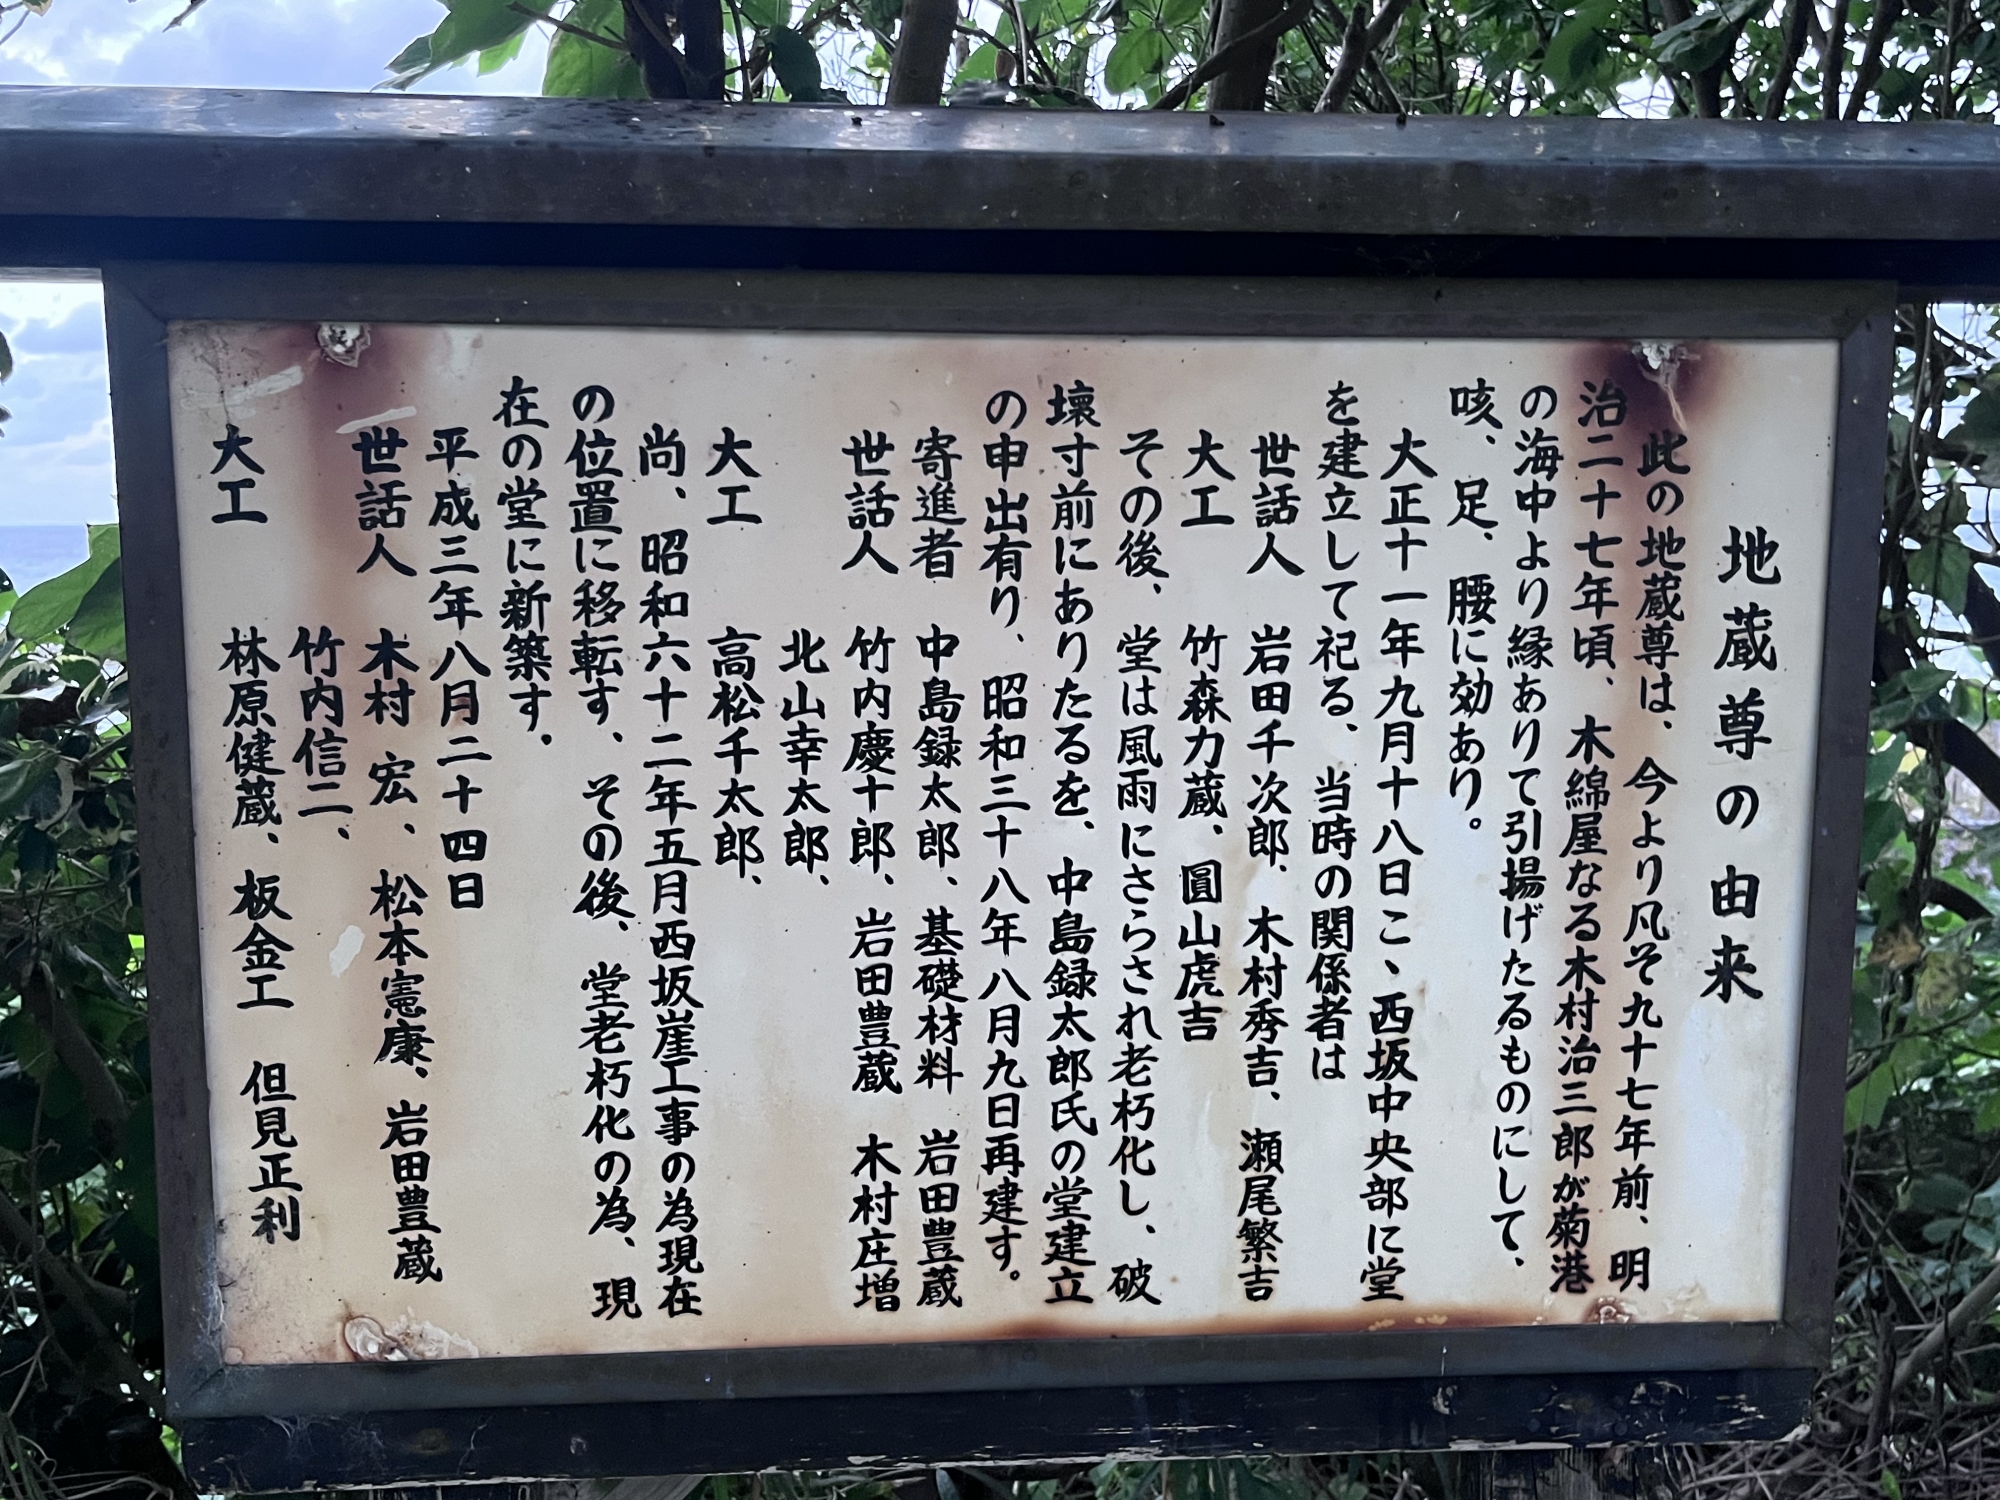 地蔵尊の由来
此の地蔵尊は、今より凡そ九十七年前、明
治二十七年頃、木綿屋なる木村治三郎が菊港
の海中より縁ありて引揚げたるものにして、
咳、足、腰に効あり。
大正十一年九月十八日こゝ西坂中央部に堂
を建立して祀る、当時の関係者は
世話人　岩田千次郎、木村秀吉、瀬尾繁吉
大工　竹森力蔵、圓山虎吉
その後、堂は風雨にさらされ老朽化し、破
壊寸前にありたるを、中島録太郎氏の堂建立
の申出有り、昭和三十八年八月九日再建す。
寄進者　中島録太郎、基礎材料　岩田豊蔵
世話人　竹内慶十郎、岩田豊蔵　木村庄増
北山幸太郎、
大工　高松千太郎、
尚、昭和六十二年五月西坂崖工事の為現在
の位置に移転す、その後、堂老朽化の為、現
在の堂に新築す．
平成三年八月二十四日
世話人　木村 宏、松本憲康、岩田豊蔵
竹内信二、
大工　林原健蔵、板金工　但見正利